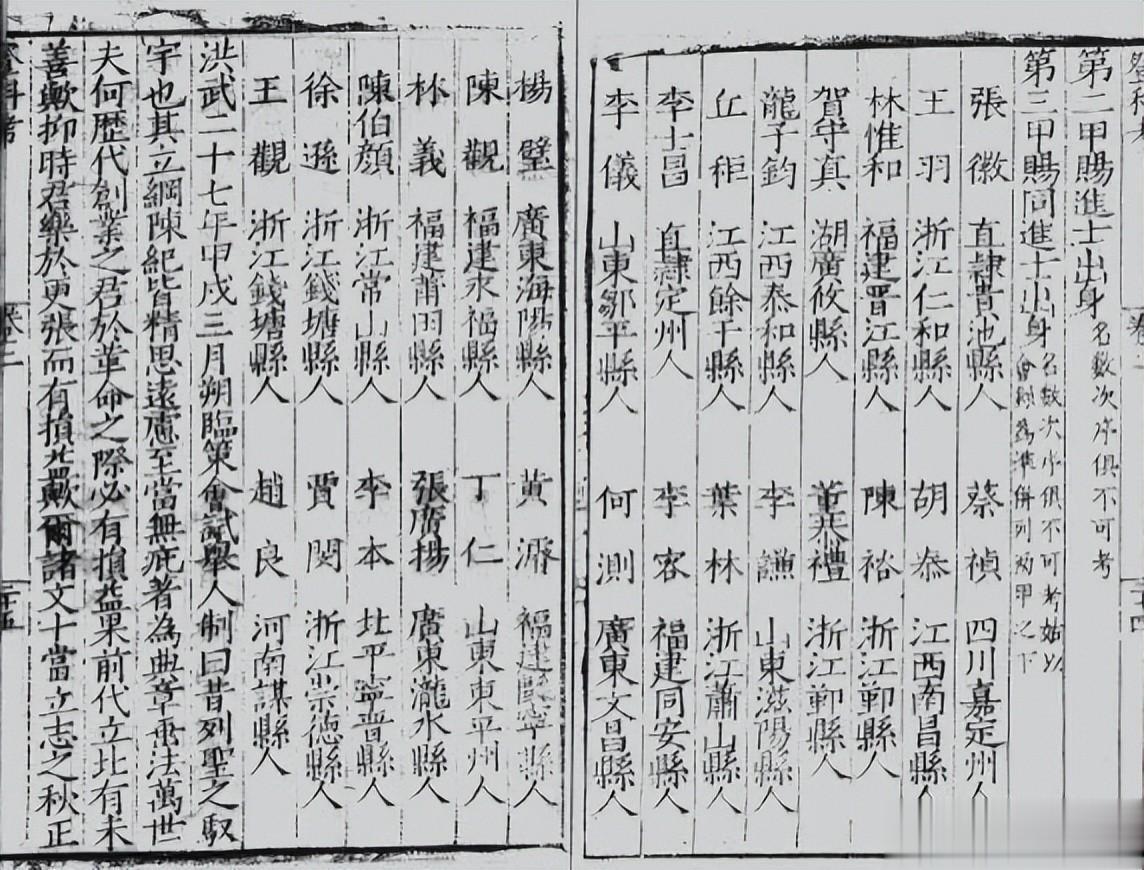 第二甲賜進士出身名數次序俱不可考
第三甲賜同進士出身名數次序俱不可考姑以會錄為準併列兩甲之下
張徽 直隸貴池縣人 蔡禎 四川嘉定州人
王羽 浙江仁和縣人 胡泰 江西南昌縣人
林惟和 福建晋江縣人 陳裕 浙江鄞縣人
賀守真 湖廣攸縣人 董恭禮 浙江鄞縣人
龍子鈞 江西泰和縣人 李謙 山東滋陽縣人
丘秬 江西餘干縣人 葉林 浙江蕭山縣人
李士昌 直隷定州人 李容 福建同安縣人
李儀 山東鄒平縣人 何測 廣東文昌縣人
楊壁 廣東海陽縣人 黃濬 福建縣人
陳觀 福建永福縣人 丁仁 山東東平州人
林義 福建莆田縣人 張廣揚 廣東瀧水縣人
陳伯顔 浙江常山縣人 李本 北平寧晋縣人
徐遜 浙江錢塘縣人 賈閔 浙江崇德縣人
王觀 浙江錢塘縣人 趙良 河南諜縣人
洪武二十七年甲戌三月朔臨策會試舉人制曰昔列聖之馭
宇也其立綱陳紀皆精思遠慮至當無疵者為典章垂法萬世
夫何歴代創業之君於革命之際必有損益果前代立比有未
善歟抑時君樂於更張而有損益歟爾諸文士當立志之秋正
登科考
二十五